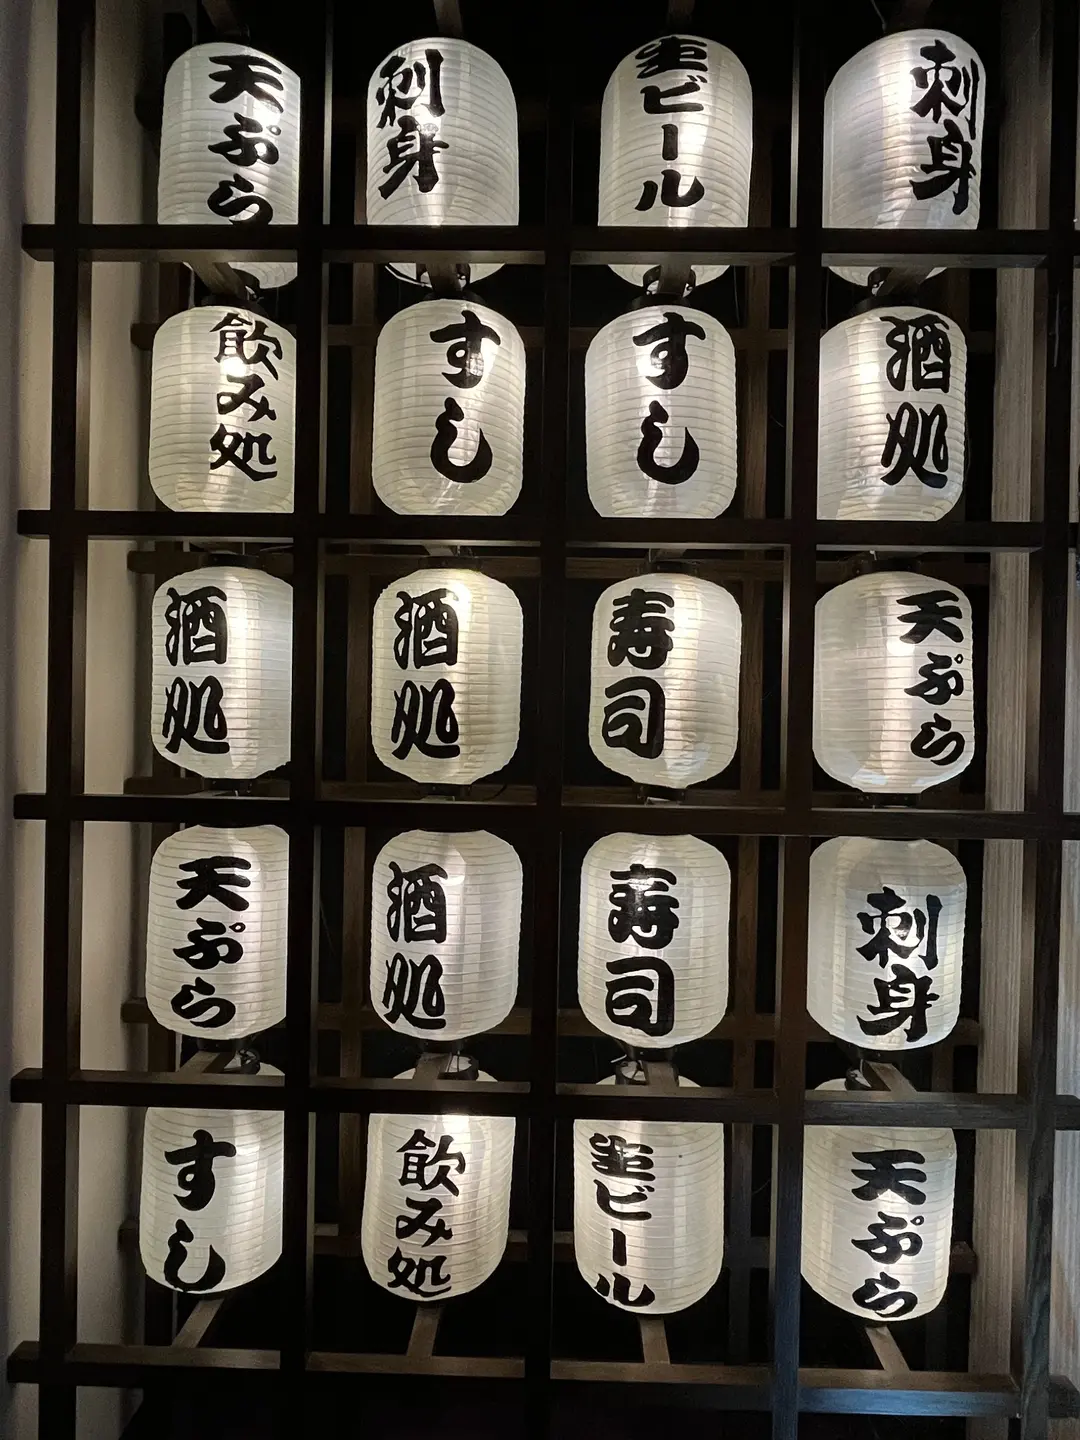 天ぷら
刺身
生ビール
刺身
飲み処
すし
すし
酒処
酒処
酒処
寿司
天ぷら
天ぷら
酒処
寿司
刺身
すし
飲み処
生ビール
天ぷら